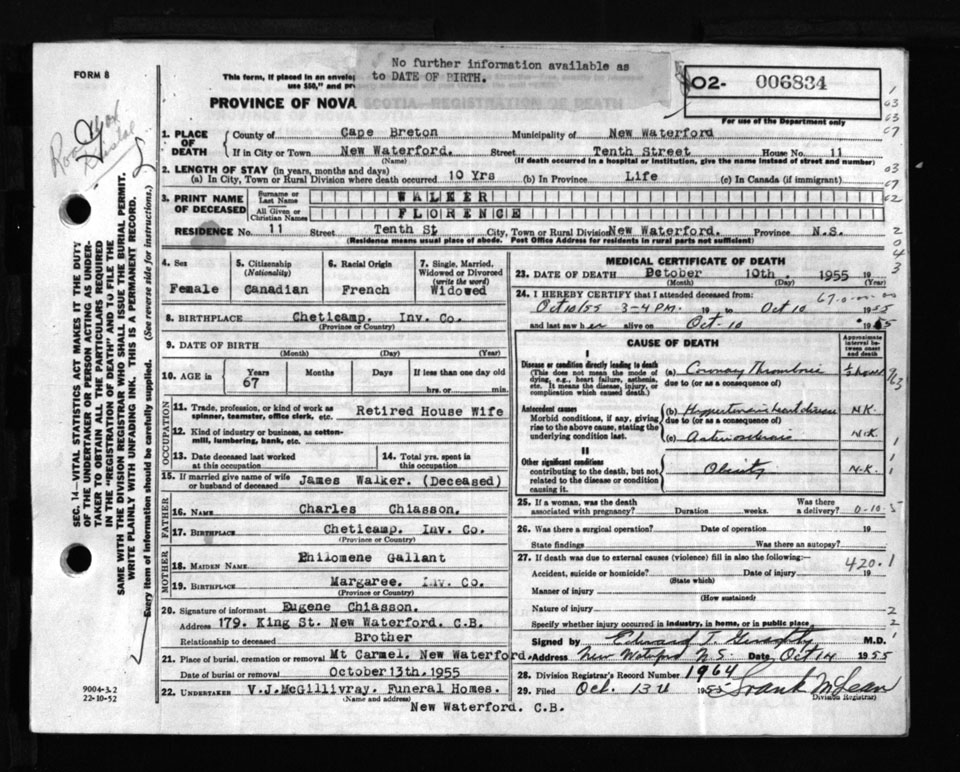 FORM 8
No further information available as
to DATE OF BIRTH.
This form, if placed in an envelope
use $50," and
PROVINCE OF NOVA SCOTIA—REGISTRATION OF DEATH
O2- 006834
For use of the Department only
1. PLACE OF DEATH
County of Cape Breton Municipality of New Waterford
If in City or Town New Waterford. Street Tenth Street House No. 11
(Name) (If death occurred in a hospital or institution, give the name instead of street and number)
2. LENGTH OF STAY (in years, months and days)
(a) In City, Town or Rural Division where death occurred 10 Yrs (b) In Province Life (c) In Canada (if immigrant)
3. PRINT NAME OF DECEASED
Surname or Last Name WALKER
All Given or Christian Names FLORENCE
RESIDENCE No. 11 Street Tenth St City, Town or Rural Division New Waterford. Province N.S.
(Residence means usual place of abode. Post Office Address for residents in rural parts not sufficient)
4. Sex
Female
5. Citizenship (Nationality)
Canadian
6. Racial Origin
French
7. Single, Married, Widowed or Divorced (write the word)
Widowed
8. BIRTHPLACE Cheticamp. Inv. Co.
(Province or Country)
9. DATE OF BIRTH
(Month) (Day) (Year)
10. AGE in Years 67 Months Days If less than one day old
hrs. or min.
OCCUPATION
11. Trade, profession, or kind of work as spinner, teamster, office clerk, etc. Retired House Wife
12. Kind of industry or business, as cotton-mill, lumbering, bank, etc.
13. Date deceased last worked at this occupation
14. Total yrs. spent in this occupation
15. If married give name of wife or husband of deceased James Walker. (Deceased)
FATHER
16. NAME Charles Chiasson.
17. BIRTHPLACE Cheticamp. Inv. Co.
(Province or Country)
MOTHER
18. MAIDEN NAME Philomene Gallant
19. BIRTHPLACE Margaree. Inv. Co.
(Province or Country)
20. Signature of informant Eugene Chiasson.
Address 179. King St. New Waterford. C.B.
Relationship to deceased Brother
21. Place of burial, cremation or removal Mt Carmel. New Waterford.
Date of burial or removal October 13th. 1955
22. UNDERTAKER V.J.McGillivray. Funeral Homes.
(Name and address)
New Waterford. C.B.
MEDICAL CERTIFICATE OF DEATH
23. DATE OF DEATH October 10th. 1955 19
(Month) (Day) (Year)
24. I HEREBY CERTIFY that I attended deceased from:
Oct 10/55 3-4 P.M. 19 to Oct 10 1955
and last saw her alive on Oct-10 1955
CAUSE OF DEATH
Approximate interval between onset and death
I
Disease or condition directly leading to death
(This does not mean the mode of dying, e.g., heart failure, asthenia, etc. It means the disease, injury, or complication which caused death.)
(a) Coronary Thrombosis ½ hour
due to (or as a consequence of)
Antecedent causes
Morbid conditions, if any, giving rise to the above cause, stating the underlying condition last.
(b) Hypertensive heart disease N.K.
due to (or as a consequence of)
(c) Arteriosclerosis N.K.
II
Other significant conditions
contributing to the death, but not related to the disease or condition causing it.
Obesity N.K.
25. If a woman, was the death associated with pregnancy? Duration weeks. Was there a delivery? 0-10-5
26. Was there a surgical operation? Date of operation 19
State findings Was there an autopsy?
27. If death was due to external causes (violence) fill in also the following:— 420.1
Accident, suicide or homicide? Date of injury 19
(State which)
Manner of injury
(How sustained)
Nature of injury
Specify whether injury occurred in industry, in home, or in public place
Signed by Edward T. Geraghty M.D.
Address New Waterford N.S. Date Oct 14 1955
28. Division Registrar's Record Number 1964
29. Filed Oct. 13th 1955 Frank McLean
Division Registrar)
SEC. 14—VITAL STATISTICS ACT MAKES IT THE DUTY
OF THE UNDERTAKER OR PERSON ACTING AS UNDER-
TAKER TO OBTAIN ALL THE PARTICULARS REQUIRED
IN THE "REGISTRATION OF DEATH" AND TO FILE THE
SAME WITH THE DIVISION REGISTRAR WHO SHALL ISSUE THE BURIAL PERMIT.
WRITE PLAINLY WITH UNFADING INK. THIS IS A PERMANENT RECORD.
Every item of information should be carefully supplied. (See reverse side for instructions.)
9004-3.2
22-10-52